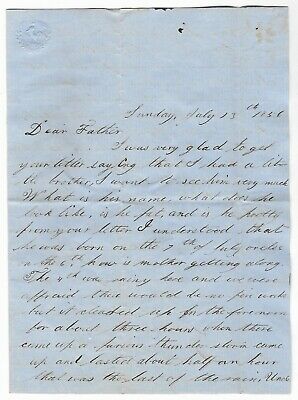 Sunday, July 13th 1856
Dear Father
I was very glad to get
your letter saying that I had a lit-
tle brother, I want to see him very much
What is his name, what does he
look like, is he fat, and is he pretty
from your letter I understood that
he was born on the 7th of July or else
on the 6th how is mother getting along.
The 4th was rainy here and we were
affraid there would be no fire works
but it cleared up for the forenoon
for about three hours when there
came up a furious thunder storm came
up and lasted about half an hour
that was the last of the rain, Uncle